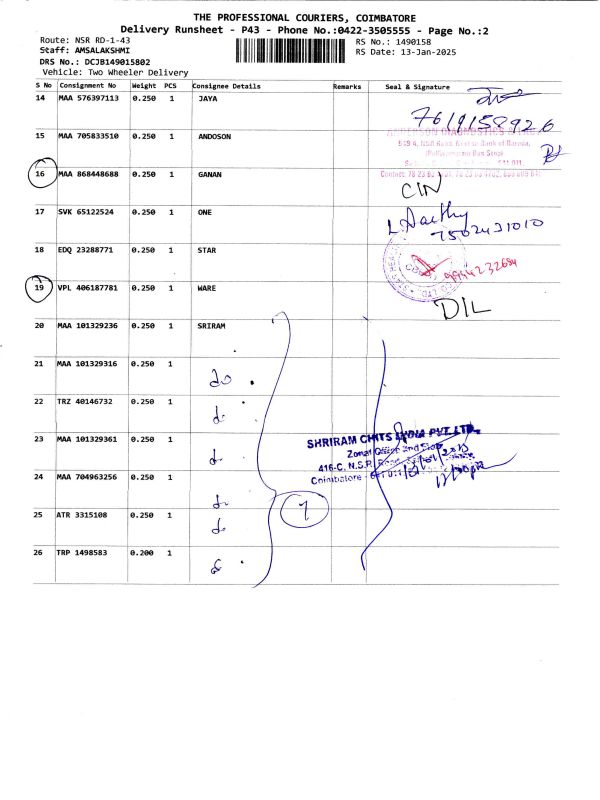 THE PROFESSIONAL COURIERS, COIMBATORE
Delivery Runsheet - P43 - Phone No.:0422-3505555 - Page No.:2
Route: NSR RD-1-43
Staff: AMSALAKSHMI
DRS No.: DCJB149015802
Vehicle: Two Wheeler Delivery
RS No.: 1490158
RS Date: 13-Jan-2025
S No Consignment No Weight PCS Consignee Details Remarks Seal & Signature
14 MAA 576397113 0.250 1 JAYA
7619158926
15 MAA 705833510 0.250 1 ANDOSON
ANDERSON DIAGNOSTICS & LABS
16 MAA 868448688 0.250 1 GANAN
CIN
17 SVK 65122524 0.250 1 ONE
L. Aarthy
7502431010
18 EDQ 23288771 0.250 1 STAR
9994232684
19 VPL 406187781 0.250 1 WARE
DIL
20 MAA 101329236 0.250 1 SRIRAM
21 MAA 101329316 0.250 1 do
22 TRZ 40146732 0.250 1 do
23 MAA 101329361 0.250 1 do
SHRIRAM CHITS INDIA PVT. LTD.
Zonal Office 2nd Floor
416-C, N.S.R. Road
Coimbatore
24 MAA 704963256 0.250 1 do
7
25 ATR 3315108 0.250 1 do
26 TRP 1498583 0.200 1